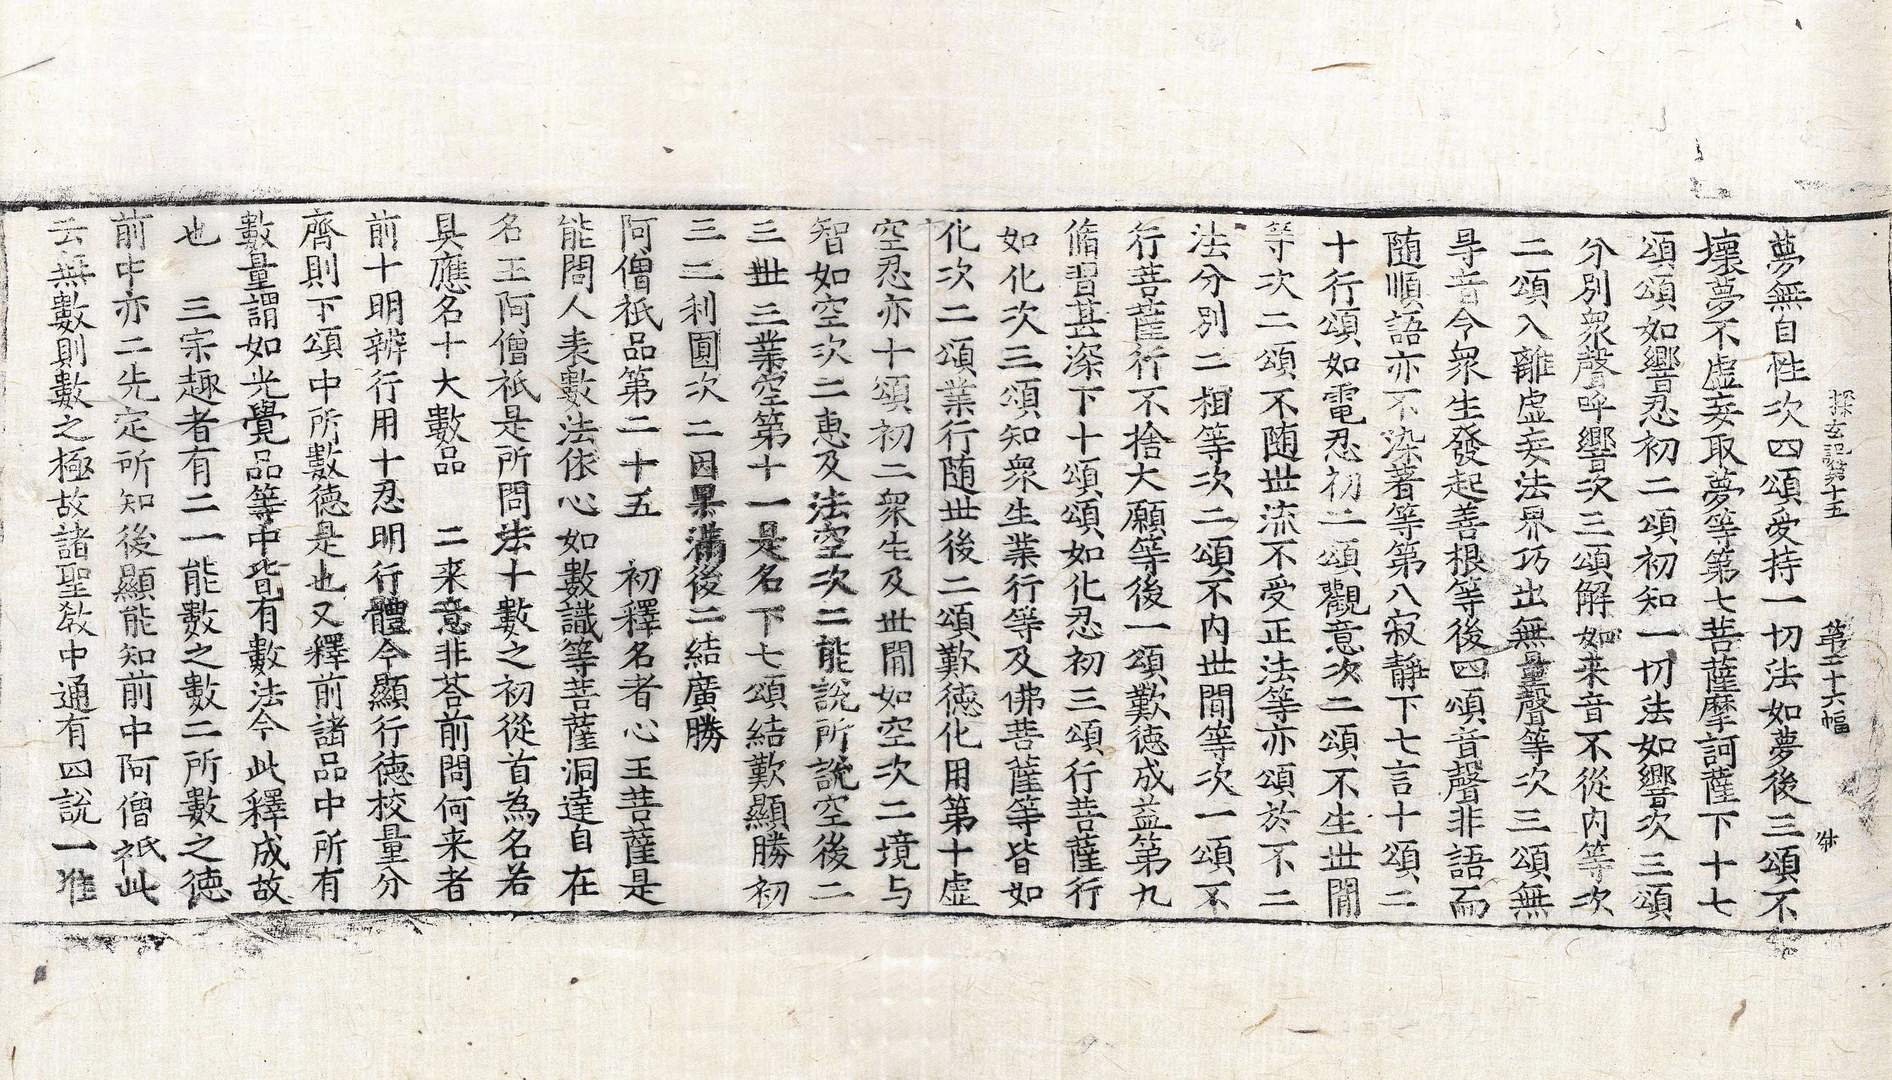 探玄記第十五　第二十六幅
夢無自性次四頌受持一切法如夢後三頌不
壞夢不虛妄取夢等第七菩薩摩訶薩下十七
頌頌如響忍初二頌初知一切法如響次三頌
分別衆聲呼響次三頌解如来音不從內等次
二頌入離虛妄法界巧出無量聲等次三頌無
㝵音令衆生發起善根等後四頌音聲非語而
随順語亦不染著等第八寂靜下七言十頌二
十行頌如電忍初二頌觀意次二頌不生世間
等次二頌不随世流不受正法等亦頌於不二
法分別二相等次二頌不内世間等次一頌不
行菩薩行不捨大願等後一頌歎徳成益第九
脩習甚深下十頌頌如化忍初三頌行菩薩行
如化次三頌知衆生業行等及佛菩薩等皆如
化次二頌業行随世後二頌歎徳化用第十虛
空忍亦十頌初二衆生及世間如空次二境与
智如空次二恵及法空次二能說所說空後二
三世三業空第十一是名下七頌結歎顯勝初
三二利圓次二因果滿後二結廣勝
阿僧祇品第二十五　初釋名者心王菩薩是
能問人表數法依心如數識等菩薩洞達自在
名王阿僧祇是所問法十數之初從首為名若
具應名十大數品　二来意非荅前問何来者
前十明辨行用十忍明行體今顯行徳校量分
齊則下頌中所數徳是也又釋前諸品中所有
數量謂如光覺品等中皆有數法今此釋成故
也　三宗趣者有二一能數之數二所數之徳
前中亦二先定所知後顯能知前中阿僧祇此
云無數則數之極故諸聖敎中通有四說一准